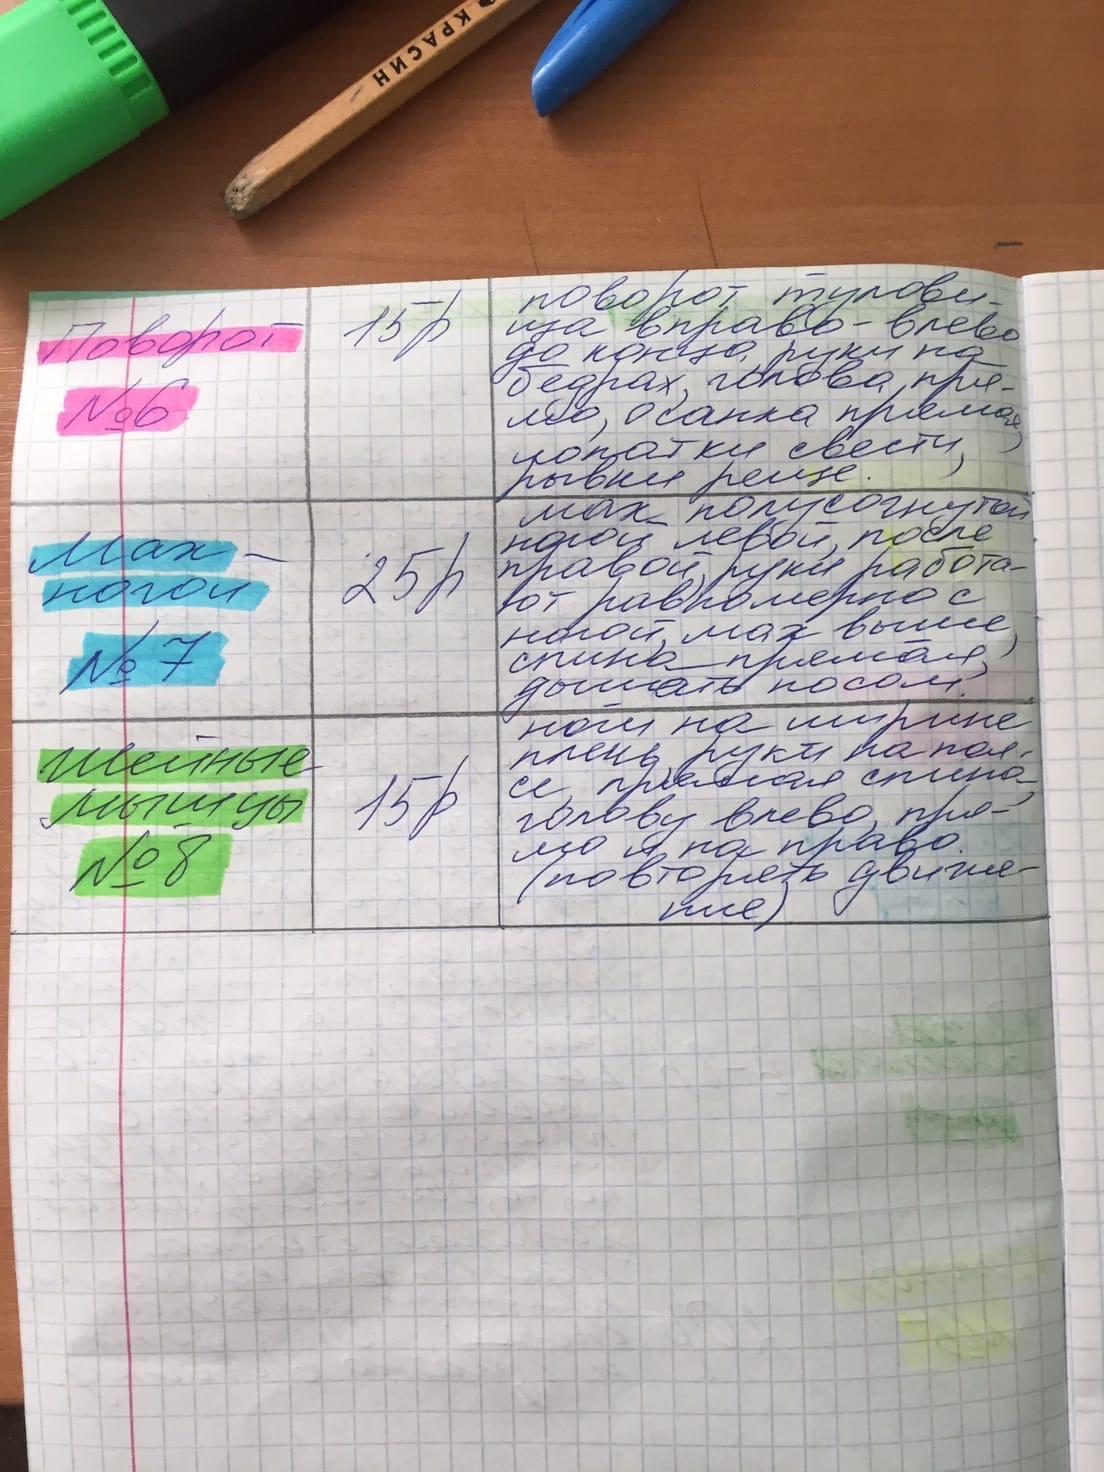 КРАСИН
Поворот
№6
15р
поворот тулови-
ща вправо-влево
до конца, руки на
бедрах, голова пря-
мо, осанка прямая,
лопатки свести,
рывки резче.
Мах
ногой
№7
25р
мах полусогнутой
ногой левой, после
правой, руки работа-
ют равномерно с
ногой, мах выше,
спина прямая,
дышать носом.
Шейные
мышцы
№8
15р
ноги на ширине
плечь, руки на поя-
се, прямая спина,
голову влево, пря-
мо и на право.
(повторять движе-
ние)